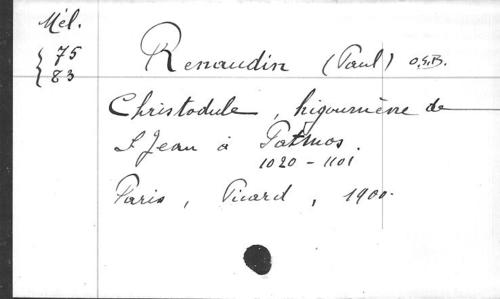 Mél.
75
83
Renaudin (Paul) O.S.B.
Christodule, higoumène de
St Jean à Patmos.
1020-1101
Paris, Picard, 1900.